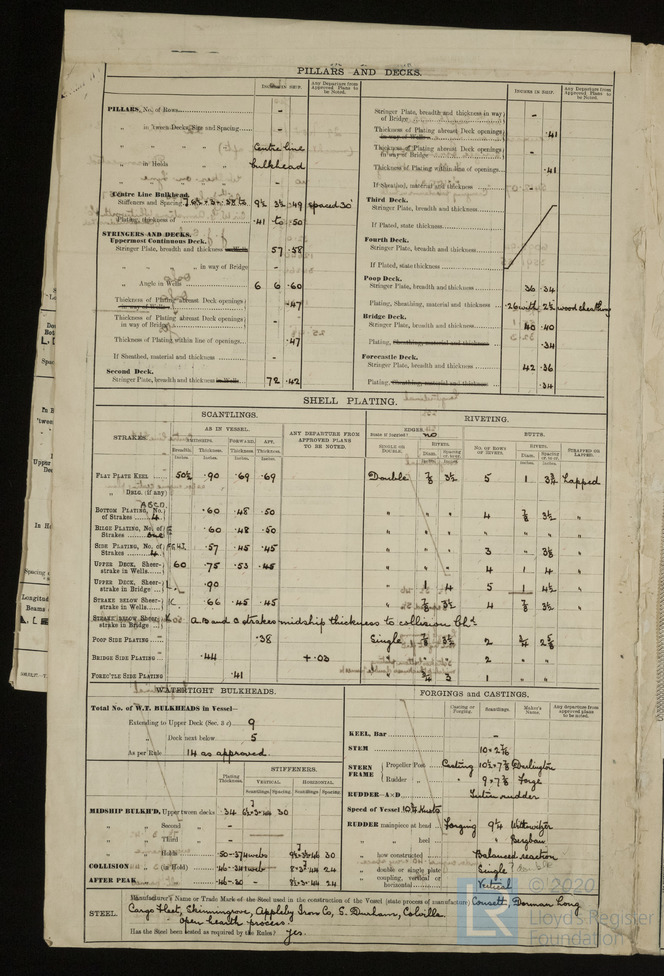 PILLARS AND DECKS.
INCHES IN SHIP.
Any Departure from Approved Plans to be Noted.
PILLARS, No. of Rows -
„ in 'tween Decks, Size and Spacing -
„ „ „ Centre line
„ in Holds „ „ bulkhead
Centre Line Bulkhead.
Stiffeners and Spacing 9½ 3½ .49 spaced 30"
Plating, thickness of .41 to .50
STRINGERS AND DECKS.
Uppermost Continuous Deck.
Stringer Plate, breadth and thickness in Wells 57 .58
„ „ „ in way of Bridge
„ Angle in Wells 6 6 .60
Thickness of Plating abreast Deck openings in way of Wells .47
Thickness of Plating abreast Deck openings in way of Bridge -
Thickness of Plating within line of openings .47
If Sheathed, material and thickness -
Second Deck.
Stringer Plate, breadth and thickness in Wells 72 .42
INCHES IN SHIP.
Any Departure from Approved Plans to be Noted.
Stringer Plate, breadth and thickness in way of Bridge -
Thickness of Plating abreast Deck openings in way of Wells .41
Thickness of Plating abreast Deck openings in way of Bridge -
Thickness of Plating within line of openings .41
If Sheathed, material and thickness -
Third Deck.
Stringer Plate, breadth and thickness
If Plated, state thickness
Fourth Deck.
Stringer Plate, breadth and thickness
If Plated, state thickness
Poop Deck.
Stringer Plate, breadth and thickness 36 .34
Plating, Sheathing, material and thickness .26 with 2½ wood sheathing
Bridge Deck.
Stringer Plate, breadth and thickness 40 .40
Plating, Sheathing, material and thickness .34
Forecastle Deck.
Stringer Plate, breadth and thickness 42 .36
Plating, Sheathing, material and thickness .34
SHELL PLATING.
SCANTLINGS.
RIVETING.
STRAKES
AS IN VESSEL.
AMIDSHIPS. FORWARD. AFT.
Breadth. Thickness. Thickness. Thickness.
ANY DEPARTURE FROM APPROVED PLANS TO BE NOTED.
EDGES.
State if Joggled? no
SINGLE OR DOUBLE.
RIVETS.
Diam. Spacing cr. to cr.
BUTTS.
NO. OF ROWS OF RIVETS.
RIVETS.
Diam. Spacing cr. to cr.
STRAPPED OR LAPPED.
FLAT PLATE KEEL 50½ .90 .69 .69 Double ⅞ 3½ 5 1 3¾ Lapped
„ DBLG. (if any)
BOTTOM PLATING, No. of Strakes 4 ABCD .60 .48 .50 „ „ „ 4 ⅞ 3½ „
BILGE PLATING, No. of Strakes one E .60 .48 .50 „ „ „ „ „ „ „
SIDE PLATING, No. of Strakes 4 .57 .45 .45 „ „ „ 3 „ 3⅛ „
UPPER DECK, Sheerstrake in Wells 60 .75 .53 .45 „ „ „ 4 1 4 „
UPPER DECK, Sheerstrake in Bridge L .90 „ 1 4 5 1 4½ „
STRAKE BELOW Sheerstrake in Wells K .66 .45 .45 „ ⅞ 3½ 4 ⅞ 3½ „
STRAKE BELOW Sheerstrake in Bridge K A B and C strakes midship thickness to collision Bhd
POOP SIDE PLATING .38 Single ⅞ 3½ 2 ¾ 2⅝ „
BRIDGE SIDE PLATING .44 +.03 „ „ „ 2 „ „
FORECTLE SIDE PLATING .41 „ ¾ 3 1 „ „ „
WATERTIGHT BULKHEADS.
Total No. of W.T. BULKHEADS in Vessel—
Extending to Upper Deck 9
„ Deck next below 5
As per Rule 14 as approved.
Plating Thickness.
STIFFENERS.
VERTICAL. HORIZONTAL.
Scantlings. Spacing. Scantlings. Spacing.
MIDSHIP BULKH'D, Upper tween decks .34 30
„ „ Second „ -
„ „ Third „ -
„ „ Holds 30
COLLISION „ (in Hold) 24
AFTER PEAK „ „ .46-.30 - 24
FORGINGS and CASTINGS.
Casting or Forging. Scantlings. Maker's Name. Any departure from approved plans to be noted.
KEEL, Bar -
STEM 10 × 2⅞
STERN FRAME { Propeller Post Casting 10½ × 7⅞ Darlington
Rudder „ „ 9 × 7⅞ Forge
RUDDER—A×D
Speed of Vessel 10¼ Knots
RUDDER mainpiece at head Forging 9¼ Wittkowitzer
„ „ heel „ Bergbau
„ how constructed Balanced reaction
„ double or single plate Single
„ coupling, vertical or horizontal Vertical
STEEL. Manufacturer's Name or Trade Mark of the Steel used in the construction of the Vessel (state process of manufacture) Consett, Dorman Long
Cargo Fleet, Skinningrove, Appleby Iron Co, S. Durham, Colville.
Open hearth process.
Has the Steel been tested as required by the Rules? Yes.
LR
© 2020
Lloyd's Register
Foundation